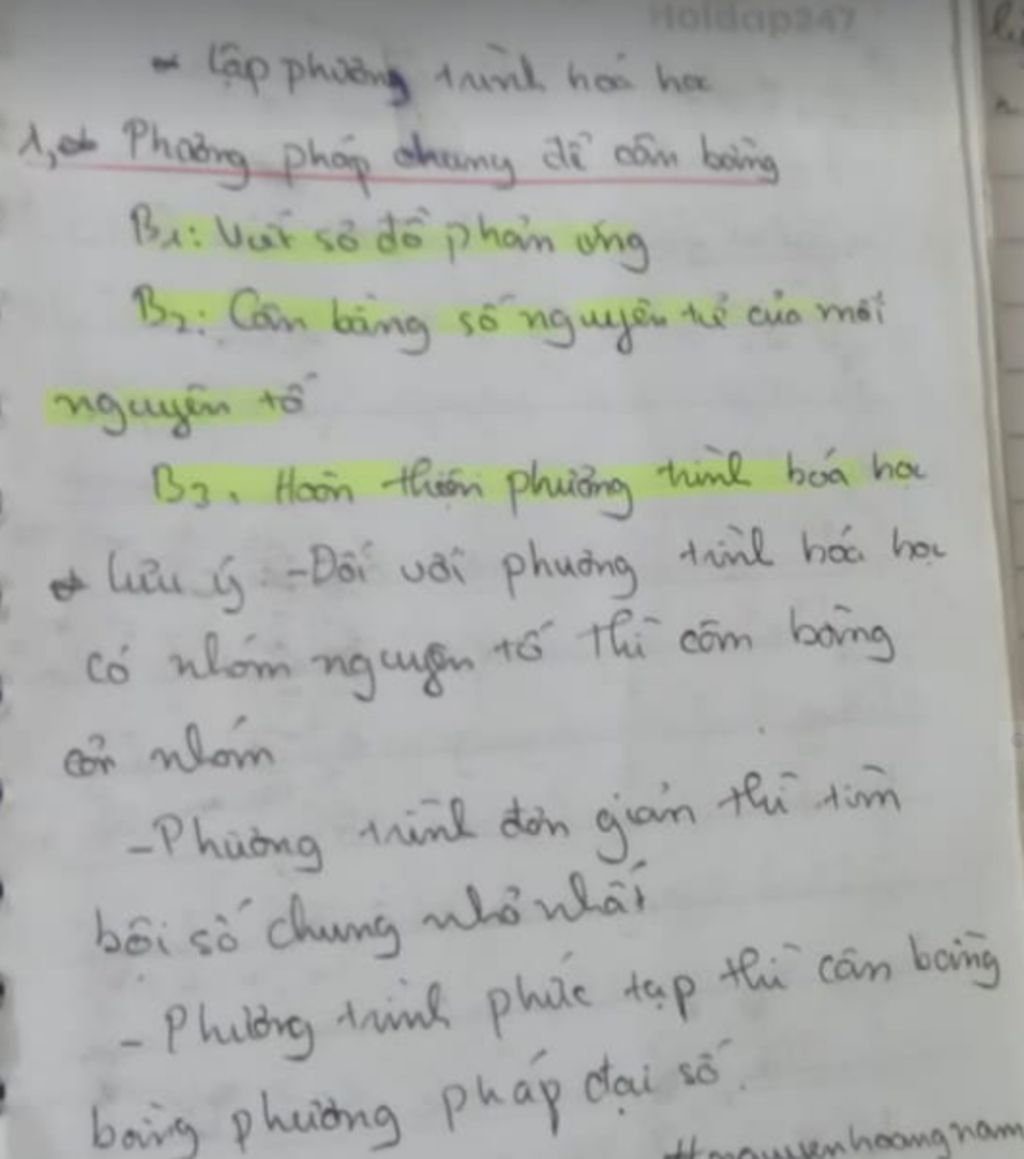 Hoidap247
- Lập phương trình hoá học
1, Phương pháp chung để cân bằng
B1: Viết sơ đồ phản ứng
B2: Cân bằng số nguyên tử của mỗi
nguyên tố
B3, Hoàn thiện phương trình hoá học
Lưu ý - Đối với phương trình hoá học
có nhóm nguyên tố thì cân bằng
cả nhóm
- Phương trình đơn giản thì tìm
bội số chung nhỏ nhất
- Phương trình phức tạp thì cân bằng
bằng phương pháp đại số.
#nguyenhoangnam